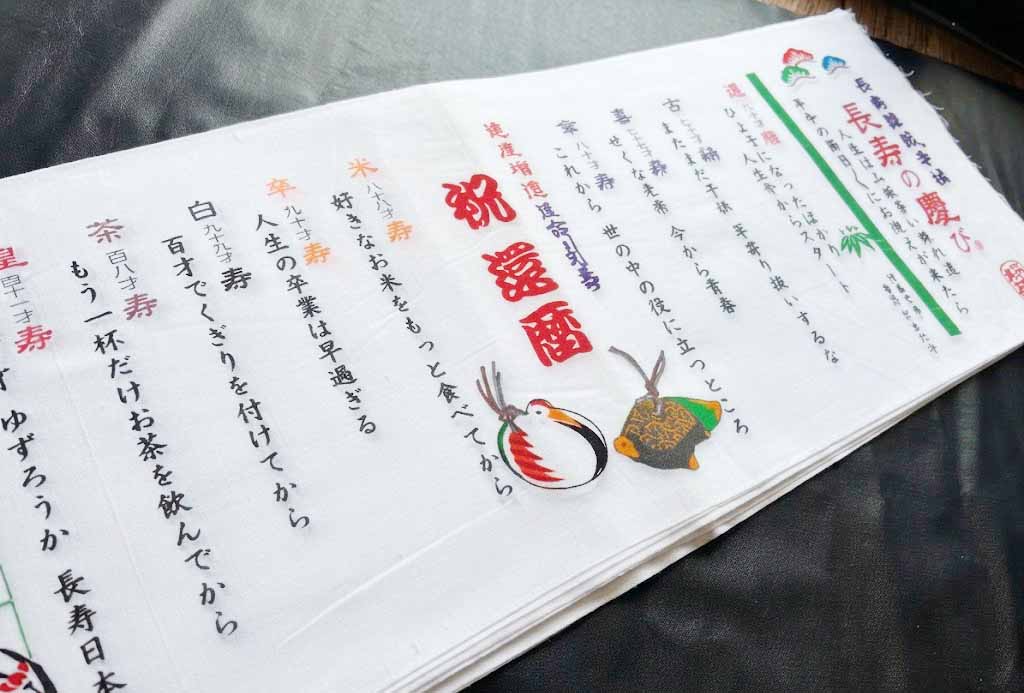 長寿の慶び
人生は山坂多い
年令の節目
還 六十才 暦になったばかりよ 人生今からスタート
古 七十才 稀 まだまだ干渉 年寄り扱いするな
喜 七十七才 寿 せくな老帝 今から青春
傘 八十才 寿 これから 世の中の役に立つところ
健康増進
祝還暦
米 八十八才 寿 好きなお米をもっと食べてから
卒 九十才 寿 人生の卒業は早過ぎる
白 九十九才 寿 百才でくぎりを付けてから
茶 百八才 寿 もう一杯だけお茶を飲んでから
皇 百十一才 寿 ゆずろうか 長寿日本